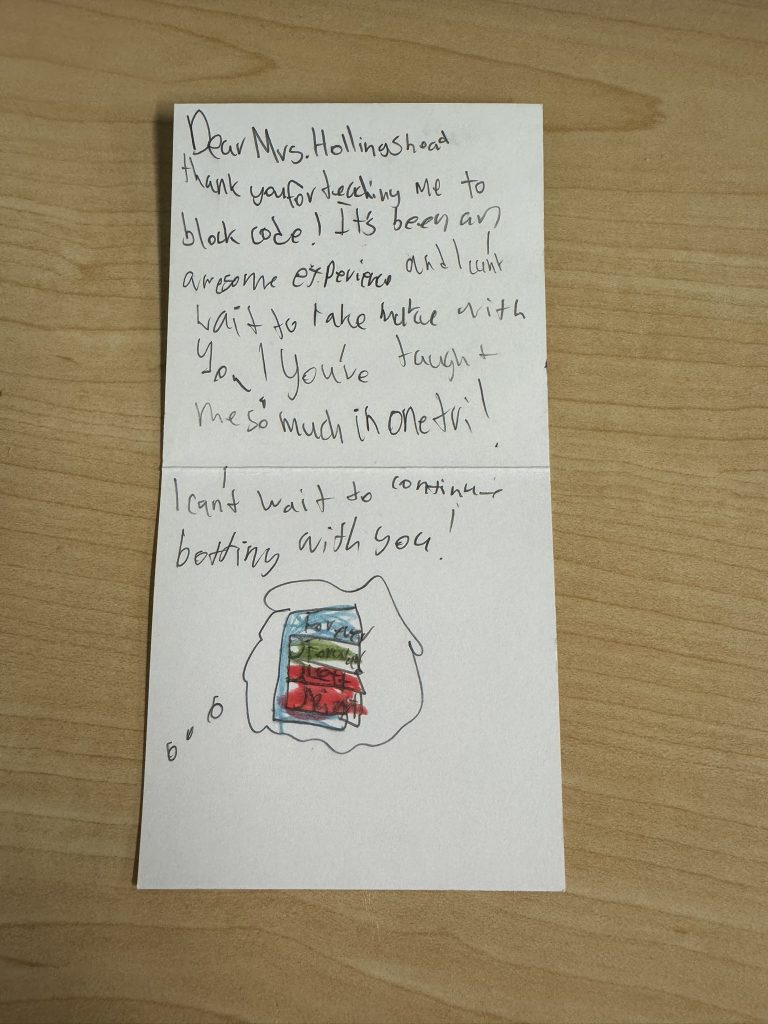 Dear Mrs. Hollingshead
thank you for teaching me to
block code! It's been an
awesome experience and I can't
wait to take with
you! You've taught
me so much in one tri!
I can't wait to continue
botting with you!
Forever
Forward
Left
Right